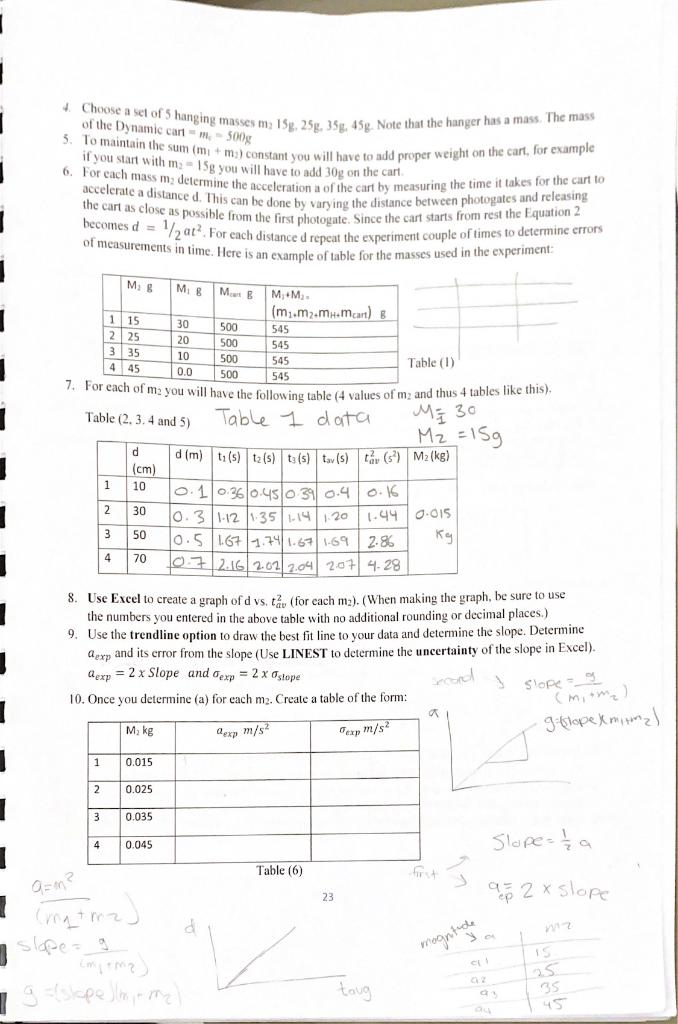 4. Choose a set of 5 hanging masses m₂ 15g, 25g, 35g, 45g. Note that the hanger has a mass. The mass
of the Dynamic cart = m꜀ = 500g
5. To maintain the sum (m₁ + m₂) constant you will have to add proper weight on the cart, for example
if you start with m₂ = 15g you will have to add 30g on the cart.
6. For each mass m₂ determine the acceleration a of the cart by measuring the time it takes for the cart to
accelerate a distance d. This can be done by varying the distance between photogates and releasing
the cart as close as possible from the first photogate. Since the cart starts from rest the Equation 2
becomes d = 1/2 at². For each distance d repeat the experiment couple of times to determine errors
of measurements in time. Here is an example of table for the masses used in the experiment:
M₂ g M₁ g Mcart g M₁+M₂=
(m₁+m₂+mH+mcart) g
1 15 30 500 545
2 25 20 500 545
3 35 10 500 545
4 45 0.0 500 545
Table (1)
7. For each of m₂ you will have the following table (4 values of m₂ and thus 4 tables like this).
Table (2, 3. 4 and 5) Table 1 data
M₁ = 30
M2 = 15g
d (cm) d (m) t₁ (s) t₂ (s) t₃ (s) tav (s) t²av (s²) M₂ (kg)
1 10 0.1 0.36 0.45 0.39 0.4 0.16
2 30 0.3 1.12 1.35 1.14 1.20 1.44 0.015
3 50 0.5 1.67 1.74 1.67 1.69 2.86 Kg
4 70 0.7 2.16 2.02 2.04 2.07 4.28
8. Use Excel to create a graph of d vs. t²av (for each m₂). (When making the graph, be sure to use
the numbers you entered in the above table with no additional rounding or decimal places.)
9. Use the trendline option to draw the best fit line to your data and determine the slope. Determine
aexp and its error from the slope (Use LINEST to determine the uncertainty of the slope in Excel).
aexp = 2 x Slope and σexp = 2 x σslope
second slope = g
(m₁+m₂)
10. Once you determine (a) for each m₂. Create a table of the form:
a
g=(slope)(m₁+m2)
M₂ kg aexp m/s² σexp m/s²
1 0.015
2 0.025
3 0.035
4 0.045
Slope = 1/2 a
Table (6)
first
aexp = 2 x slope
23
a=m2
(m1+m2)
slope = g
(m₁+m2)
g=(slope)(m₁+m2)
d
tavg
magnitude
a m2
a1 15
a2 25
a3 35
a4 45